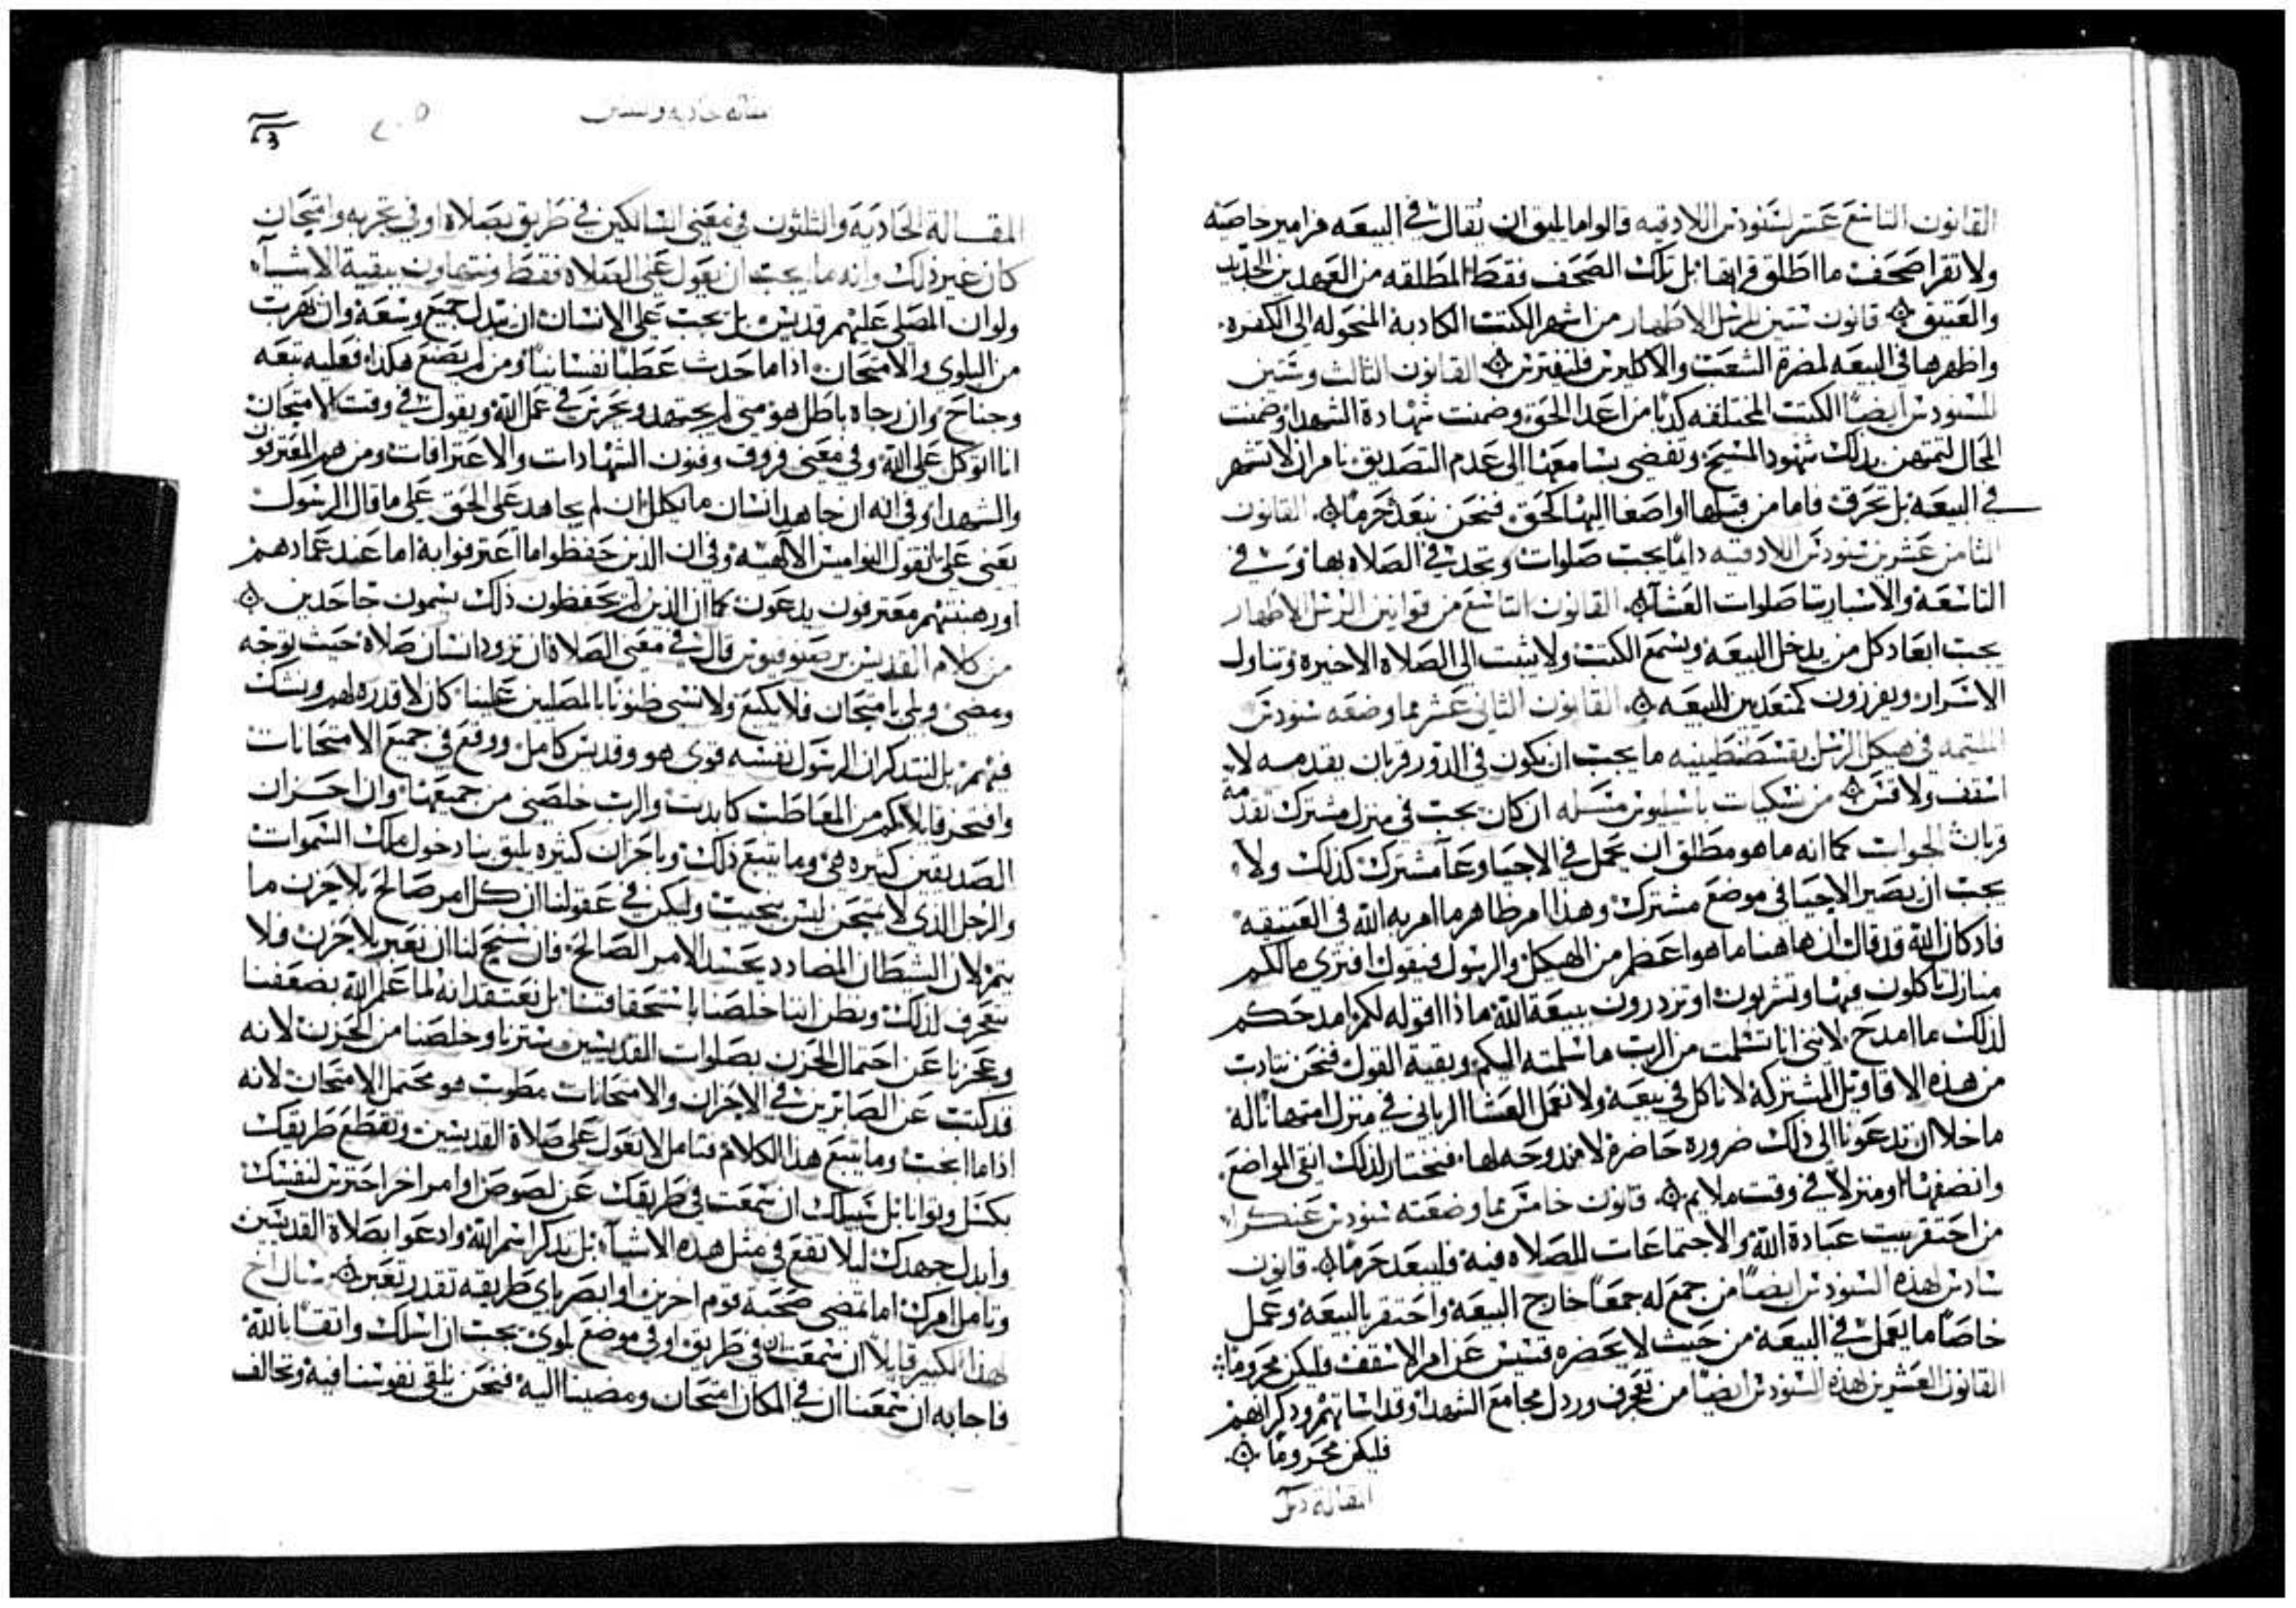 القانون التاسع عشر لسنودس اللادقيه قالوا ما يليق ان يقال في البيعه مزامير خاصيه
ولا تقرا صحف ما اطلق قرايتها بل تلك الصحف فقط المطلقه من العهدين الجديد
والعتيق قانون ستين للرسل الاطهار من اشهر الكتب الكاذبة المنحوله الى الكفره
واظهرها في البيعه لمضرة الشعب والاكليرس فلنفترس القانون الثالث وستين
للسنودس ايضًا الكتب المختلفه كذبًا من اعدا الحق وضمنت شهادة الشهدا وضمنت
المحال لتمتهن بذلك شهود المسيح وتفضي بسامعها الى عدم التصديق نامر ان لا تشهر
في البيعه بل تحرق فاما من قبلها او اصغا اليها كحق فنحن نبعده حرمًا القانون
الثامن عشر من سنودس اللادقيه دايمًا يجب صلوات وتحدث في الصلاه بها
التاسعة والاسبارتنا صلوات العشآ القانون التاسع من قوانين الرسل الاطهار
يجب ابعاد كل من يدخل البيعه ويسمع الكتب ولا يثبت الى الصلاه الاخيره وتناول
الاسرار ويفرزون كمتعدين للبيعه القانون الثاني عشر مما وضعه سنودس
الملتيمه في هيكل الرسل بقسطنطينيه ما يجب ان يكون في الدور قربان يقدمه لا
اسقف ولا قس من نسكيات باسيليوس مسله ان كان يجب في منزل مشترك تقدمة
قربان الجواب كما انه ما هو مطلق ان يحمل في الاحيا وعآ مشترك كذلك ولا
يجب ان يصير الاحيا في موضع مشترك وهذا امر ظاهر ما امر به الله في العتيقه
فاذ كان الله قد قال ان هاهنا ما هو اعظم من الهيكل والرسول فيقول افترى ما لكم
منازل تاكلون فيها وتشربون او تزدرون ببيعة الله ماذا اقوله لكم امدحكم
لذلك ما امدح لانني انا تسلمت من الرب ما سلمته اليكم وبقية القول فنحن نتادب
من هذه الاقاويل المشتركه لا ناكل في بيعه ولا نعمل العشا الرباني في منزل امتهانًا له
ما خلا ان تدعونا الى ذلك ضروره حاضرة لا مندوحه لها فنختار لذلك انقى المواضع
وانضفها او منزلًا في وقت ملايم قانون خامس مما وضعته سنودس عنكرا
من احتقر بيت عبادة الله والاجتماعات للصلاه فيه فليبعد حرمًا قانون
سادس لهذه السنودس ايضًا من جمع له جمعًا خارج البيعه واحتقر بالبيعه وعمل
خاصًا ما يعمل في البيعه من حيث لا يحضره قسيس عن امر الاسقف فليكن محرومًا
القانون العشرين لهذه السنودس ايضًا من تعجرف ورذل مجامع الشهدا وقداساتهم وذكرانهم
فليكن محرومًا
المقاله
المقالة الحادية والثلثون في معنى السالكين في طريق بصلاة او في تجربه وامتحان
كان غير ذلك وانه ما يجب ان يعول على الصلاة فقط ونتهاون ببقية الاشيآ
ولو ان المصلي عليهم قديس بل يجب على الانسان ان يبذل جميع وسعه وان يهرب
من البلوى والامتحان اذا ما حدث عطبًا نفسانيًا ومن لم يصنع هكذا فعليه تبعه
وجناح وان رجاه باطل هو متى لم يجتهد ويحرص في عمل الله ويقول في وقت الامتحان
انا اتوكل على الله وفي معنى فروق وفنون الشهادات والاعترافات ومن هم المعترفون
والشهدا وفي انه ان جاهد انسان ما يكلل ان لم يجاهد على الحق على ما قال الرسول
يعني على ما تقول النواميس الالهيه وفي ان الذين حفظوا ما اعترفوا به اما عند عمادهم
او رهبنتهم معترفون يدعون كما ان الذين لم يحفظون ذلك يسمون جاحدين
من كلام القديس برصنوفيوس قال في معنى الصلاة ان زود انسان صلاة حيث توجه
ومضى وبلي بامتحان فلا يكيع ولا نسي ظنونًا بالمصلين علينا كان لا قدره لهم ونشك
فيهم بل لنتذكر ان الرسول نفسه قوي هو وقديس كامل ووقع في جميع الامتحانات
وافتخر قايلًا كم من المعاطب كابدت والرب خلصني من جميعها وان احزان
الصديقين كثيره هي وما يتبع ذلك وباحزان كثيره يليق بنا دخول ملك السموات
والرجل الذي لا يمتحن ليس بنجيب وليكن في عقولنا ان كل امر صالح بلا حزن ما
يتم لان الشيطان المضادد يحسد الامر الصالح فان سنح لنا ان نعبر بلا حزن فلا
نتعجرف لذلك ونظن اننا خلصنا باستحقاقنا بل نعتقد انه لما علم الله بضعفنا
وعجزنا عن احتمال الحزن بصلوات القديسين سترنا وخلصنا من الحزن لانه
قد كتب عن الصابرين في الاحزان والامتحانات مطوب هو محتمل الامتحان لانه
اذا ما امتحن وما يتبع هذا الكلام فتامل لا تعول على صلاة القديسين وتقطع طريقك
بكسل وتوانا بل سبيلك ان سمعت في طريقك عن لصوص او امر اخر احترس لنفسك
وابذل جهدك ليلا تقع في مثل هذه الاشيآ بل تذكر اسم الله وادعوا بصلاة القديسين
وتامل امرك اما تمضي صحبة قوم اخرين او ابصر باي طريقه تقدر تعبر سال اخ
لهذا الكبير قايلًا ان سمعت ان في طريق او في موضع بلوى يجب ان اسلك واثقًا بالله
فاجابه ان سمعنا ان في المكان امتحان ومضينا اليه فنحن نلقي نفوسنا فيه ونخالف